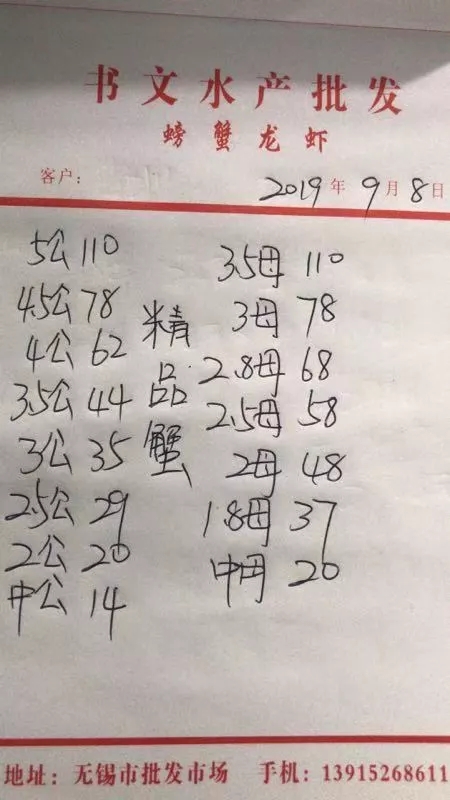 书文水产批发
螃蟹龙虾
客户:
2019年9月8日
5公 110
4.5公 78
4公 62
3.5公 44
3公 35
2.5公 29
2公 20
中公 14
精品蟹
3.5母 110
3母 78
2.8母 68
2.5母 58
2母 48
1.8母 37
中母 20
地址: 无锡市批发市场 手机: 13915268611